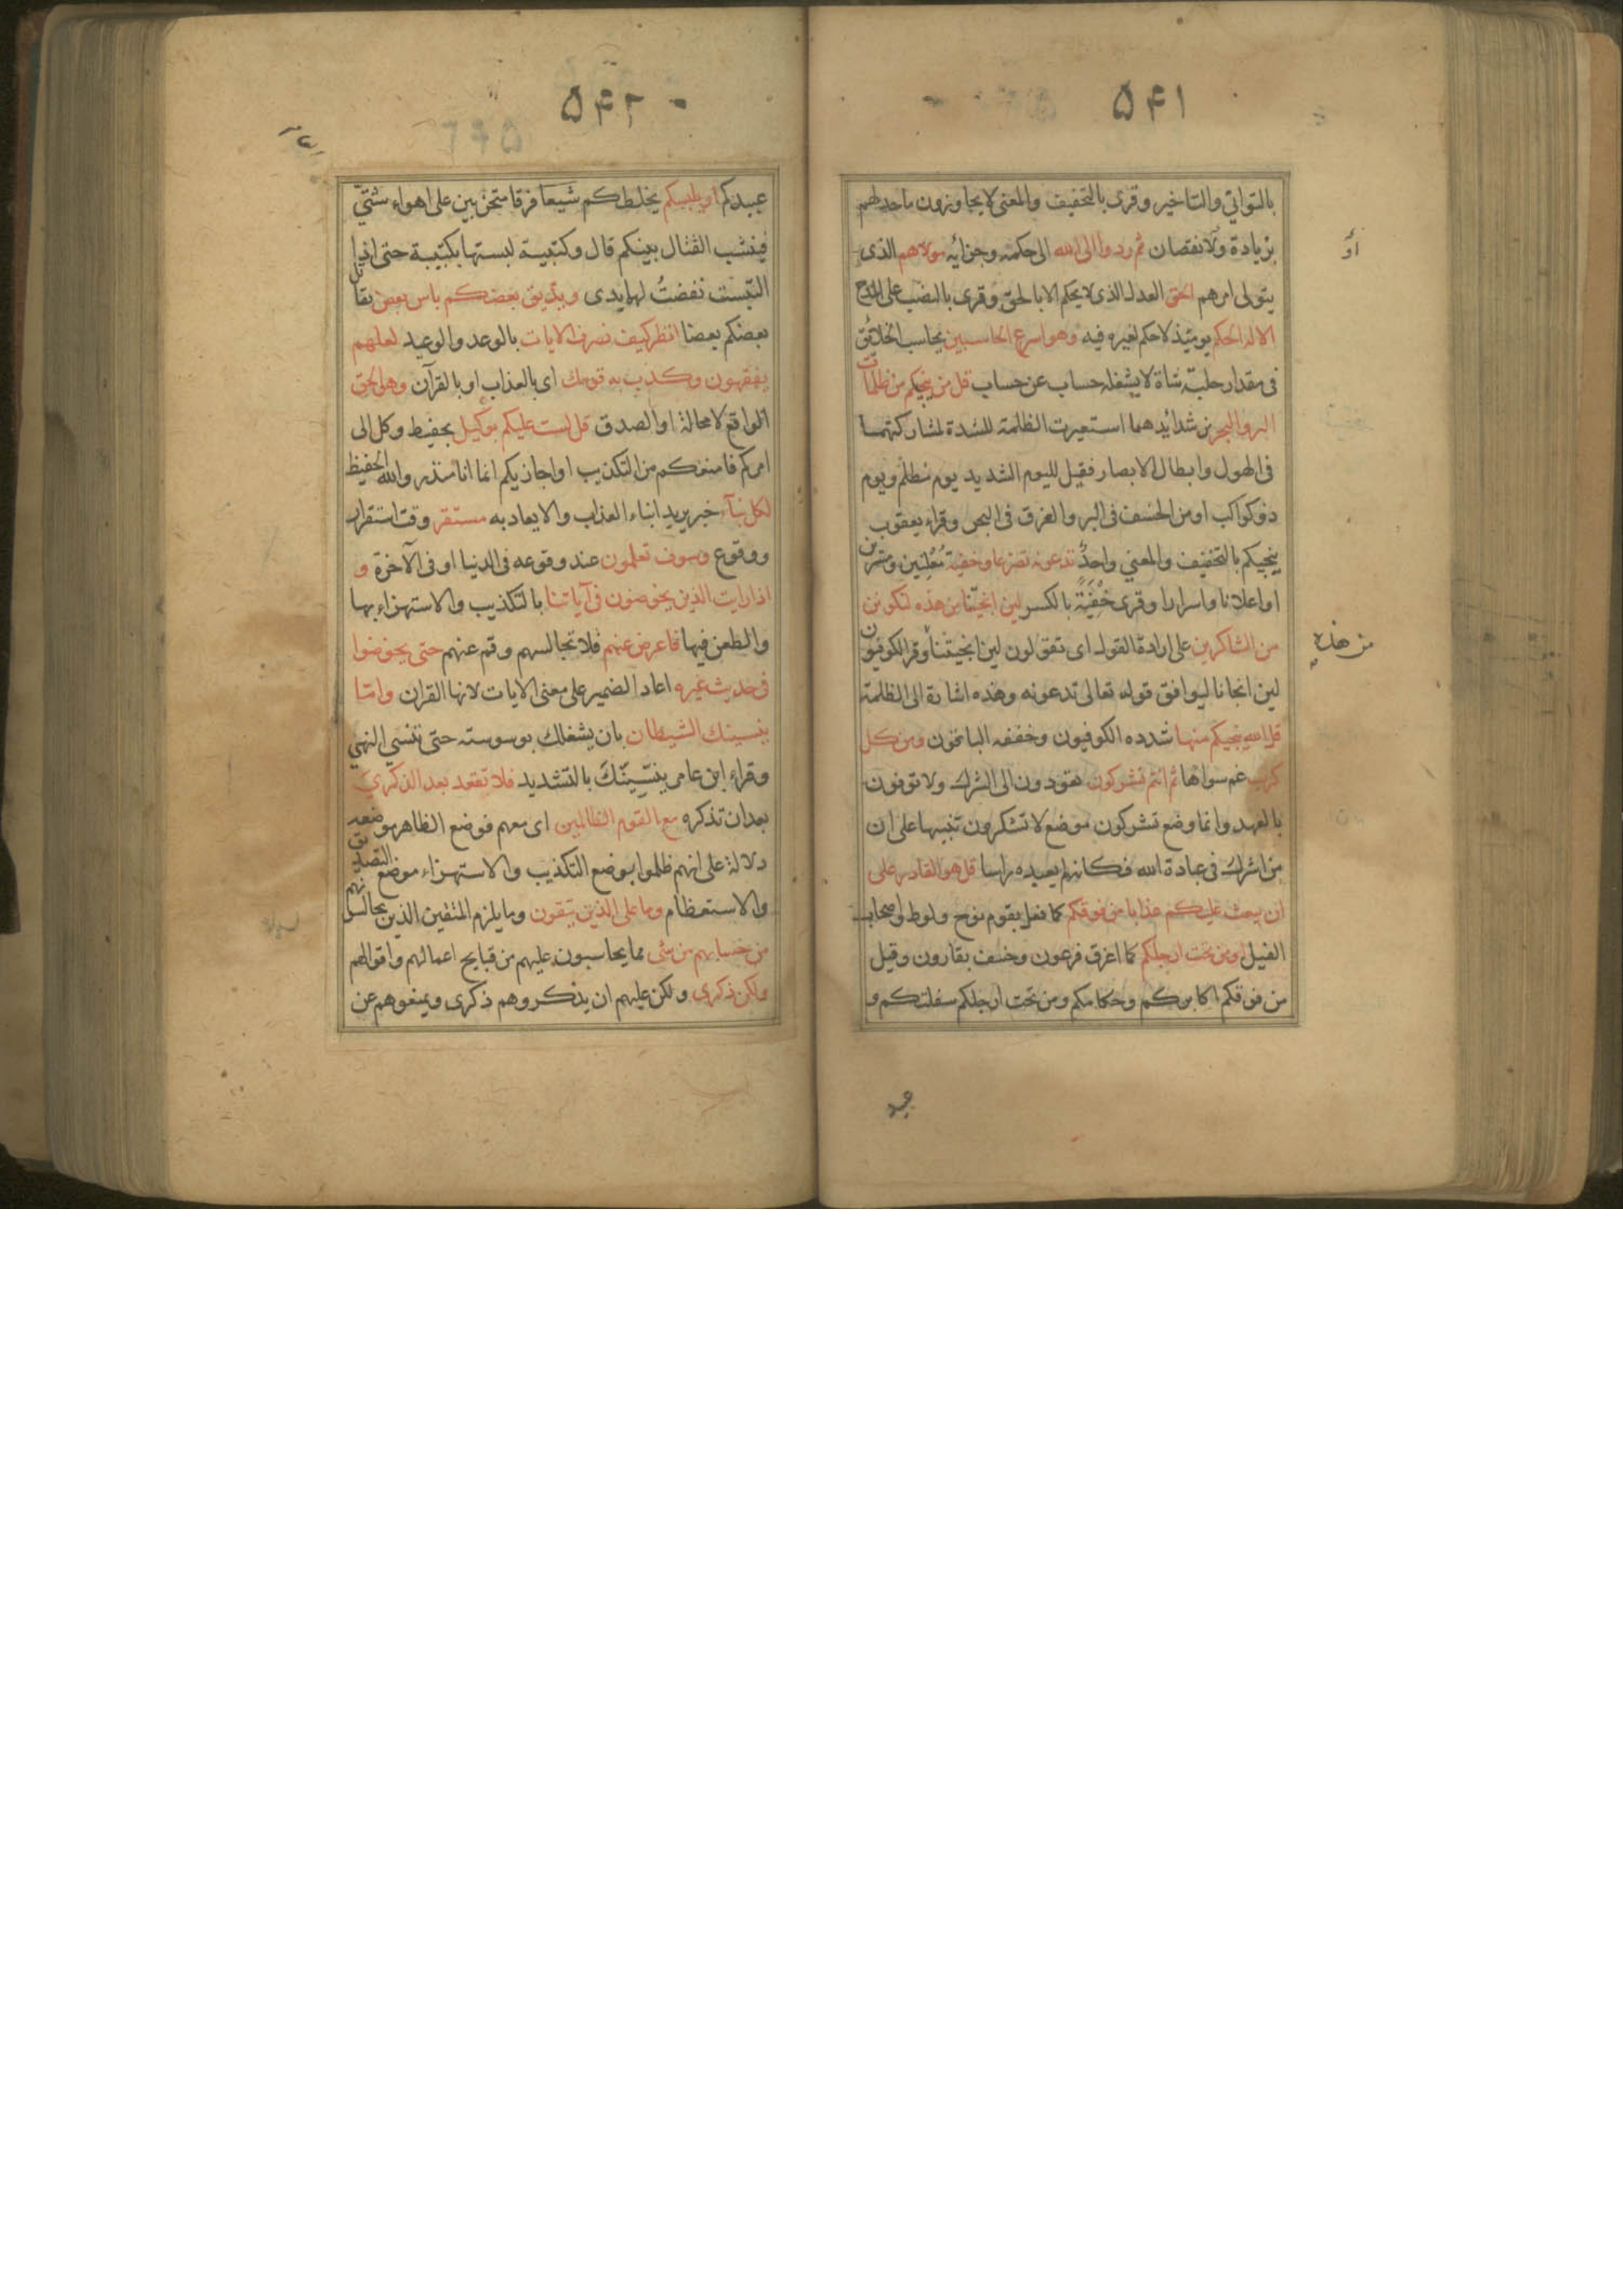 ۵۴۱
بالتوانى والتاخير وقرى بالتخفيف والمعنى لا يجاوزون ما حد لهم
بزيادة ولا نقصان ثم ردوا الى الله الى حكمه وجزائه مولاهم الذى
يتولى امرهم الحق العدل الذى لا يحكم الا بالحق وقرى بالنصب على المدح
الا له الحكم يومئذ لا حكم لغيره فيه وهو اسرع الحاسبين يحاسب الخلائق
فى مقدار حلب شاة لا يشغله حساب عن حساب قل من ينجيكم من ظلمات
البر والبحر من شدائدهما استعيرت الظلمة للشدة لمشاركتهما
فى الهول وابطال الابصار فقيل لليوم الشديد يوم مظلم ويوم
ذو كواكب او من الخسف فى البر والغرق فى البحر وقراء يعقوب
ينجيكم بالتخفيف والمعنى واحد تدعونه تضرعا وخفية معلنين ومسرين
او اعلانا واسرارا وقرى خفية بالكسر لين انجيتنا من هذه لنكونن
من الشاكرين على ارادة القول اى تقولون لين انجيتنا وقر الكوفيون
لين انجانا ليوافق قوله تعالى تدعونه وهذه اشارة الى الظلمة
قل الله ينجيكم منها شدده الكوفيون وخففه الباقون ومن كل
كرب غم سواها ثم انتم تشركون تعودون الى الشرك ولا توفون
بالعهد وانما وضع تشركون موضع لا تشكرون تنبيها على ان
من اشرك فى عبادة الله فكانه لم يعبده راسا قل هو القادر على
ان يبعث عليكم عذابا من فوقكم كما فعل بقوم نوح ولوط واصحاب
الفيل او من تحت ارجلكم كما اغرق فرعون وخسف بقارون وقيل
من فوقكم اكابركم وحكامكم ومن تحت ارجلكم سفلتكم و
أو
من هذه
عبيد
۵۴۲
عبيدكم او يلبسكم يخلطكم شيعا فرقا متحزبين على اهواء شتى
فينشب القتال بينكم قال وكتيبة لبستها بكتيبة حتى اذا
التبست نفضت لها يدى ويذيق بعضكم باس بعض يقاتل
بعضكم بعضا انظر كيف نصرف الايات بالوعد والوعيد لعلهم
يفقهون وكذب به قومك اى بالعذاب او بالقرآن وهو الحق
الواقع لا محالة او الصدق قل لست عليكم بوكيل بحفيظ وكل الى
امركم فامنعكم من التكذيب او اجازيكم انما انا منذر والله الحفيظ
لكل نباء خبر يريد انباء العذاب والايعاد به مستقر وقت استقرار
ووقوع وسوف تعلمون عند وقوعه فى الدنيا او فى الآخرة و
اذا رايت الذين يخوضون فى آياتنا بالتكذيب والاستهزاء بها
والطعن فيها فاعرض عنهم فلا تجالسهم وقم عنهم حتى يخوضوا
فى حديث غيره اعاد الضمير على معنى الايات لانها القران واما
ينسينك الشيطان بان يشغلك بوسوسته حتى تنسى النهى
وقراء ابن عامر ينسينك بالتشديد فلا تقعد بعد الذكرى
بعد ان تذكره مع القوم الظالمين اى معهم فوضع الظاهر موضعه
دلالة على انهم ظلموا بوضع التكذيب والاستهزاء موضع التصديق
والاستعظام وما على الذين يتقون وما يلزم المتقين الذين يجالسونهم
من حسابهم من شى مما يحاسبون عليهم من قبايح اعمالهم واقوالهم
ولكن ذكرى ولكن عليهم ان يذكروهم ذكرى ويمنعوهم عن